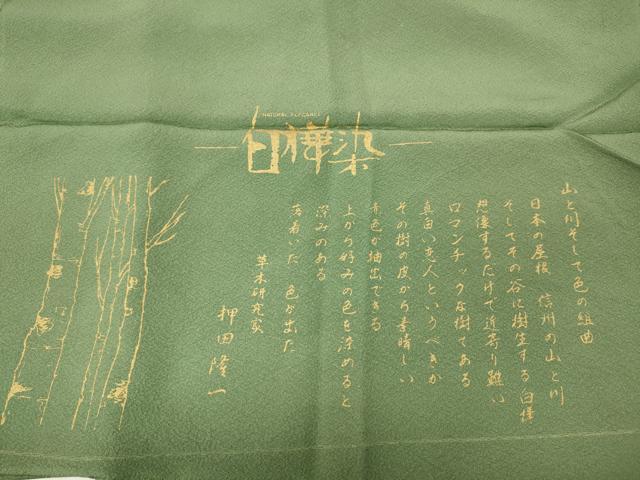 NATURAL ELEGANCE
白樺染
山と川そして色の組曲
日本の屋根 信州の山と川
そしてその谷に樹生する白樺
想像するだけで近寄り難い
ロマンチックな樹である
真白い恋人というべきか
その樹の皮から素晴しい
青色が抽出できる
上から好みの色を染めると
深みのある
落着いた 色が出た
草木研究家
押田隆一